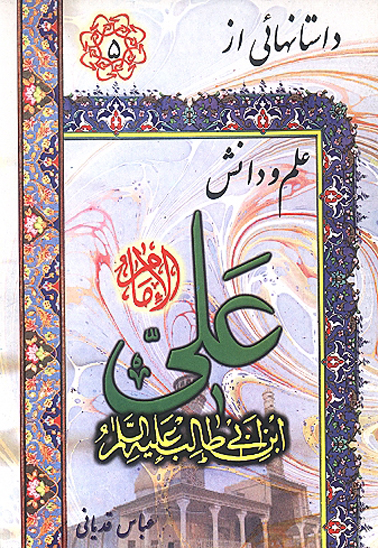 ۵
داستانهائی از
علم و دانش
الإمام
علیّ
ابن ابی طالب علیه السلام
عباس قدیانی